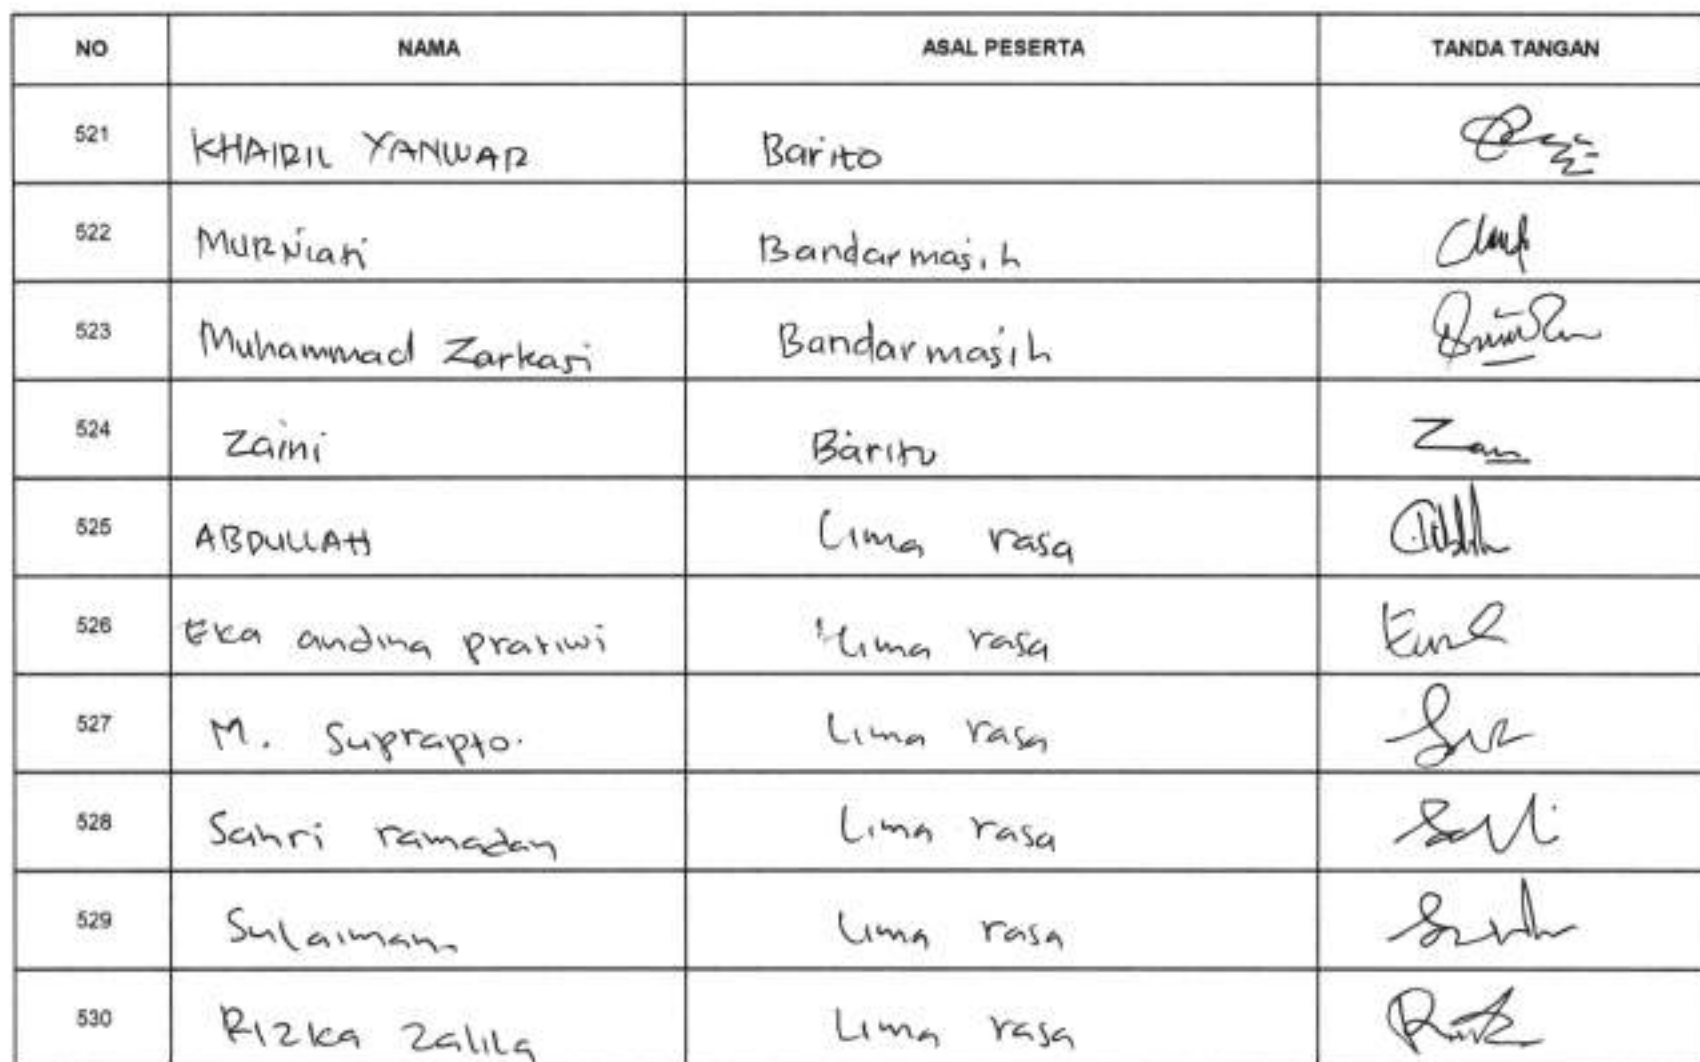 NO NAMA ASAL PESERTA TANDA TANGAN
521 KHAIRIL YANWAR Barito
522 MURNiati Bandarmasih
523 Muhammad Zarkasi Bandarmasih
524 Zaini Barito Zan
525 ABDULLAH Lima rasa
526 Eka andina pratiwi Lima rasa
527 M. Suprapto. Lima rasa
528 Sahri ramadan Lima rasa
529 Sulaiman Lima rasa
530 Rizka Zalila Lima rasa